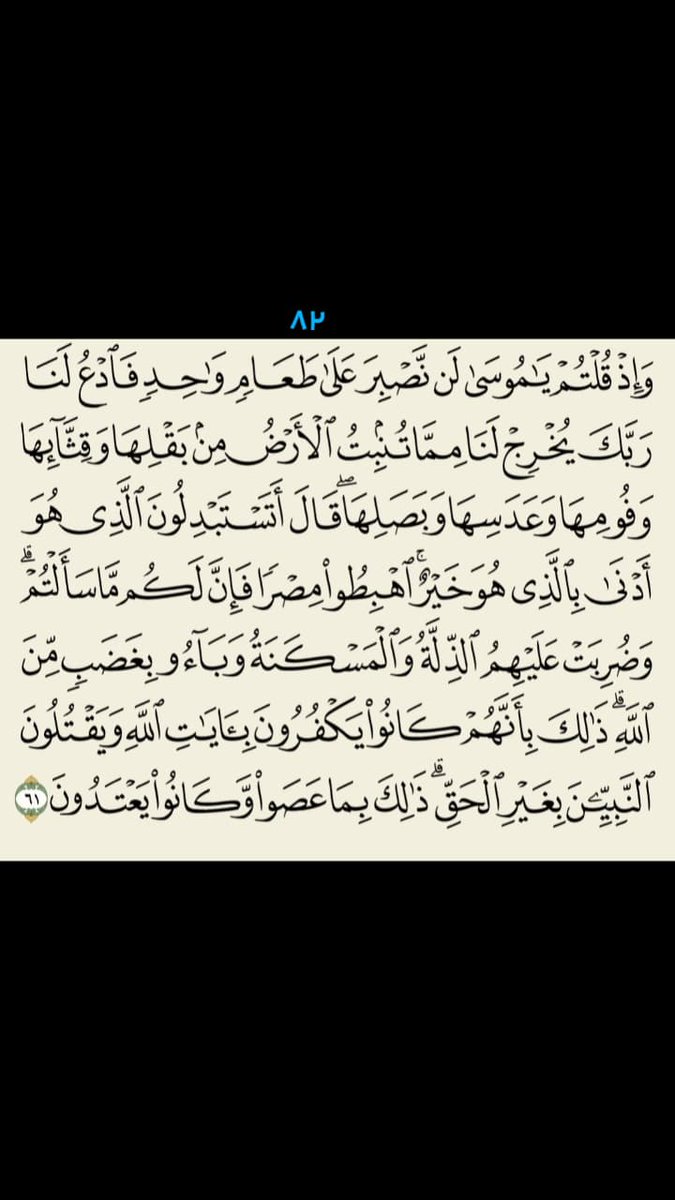 ٨٢
وَإِذۡ قُلۡتُمۡ يَٰمُوسَىٰ لَن نَّصۡبِرَ عَلَىٰ طَعَامٖ وَٰحِدٖ فَٱدۡعُ لَنَا
رَبَّكَ يُخۡرِجۡ لَنَا مِمَّا تُنۢبِتُ ٱلۡأَرۡضُ مِنۢ بَقۡلِهَا وَقِثَّآئِهَا
وَفُومِهَا وَعَدَسِهَا وَبَصَلِهَاۖ قَالَ أَتَسۡتَبۡدِلُونَ ٱلَّذِي هُوَ
أَدۡنَىٰ بِٱلَّذِي هُوَ خَيۡرٌۚ ٱهۡبِطُواْ مِصۡرٗا فَإِنَّ لَكُم مَّا سَأَلۡتُمۡۗ
وَضُرِبَتۡ عَلَيۡهِمُ ٱلذِّلَّةُ وَٱلۡمَسۡكَنَةُ وَبَآءُو بِغَضَبٖ مِّنَ
ٱللَّهِۗ ذَٰلِكَ بِأَنَّهُمۡ كَانُواْ يَكۡفُرُونَ بِـَٔايَٰتِ ٱللَّهِ وَيَقۡتُلُونَ
ٱلنَّبِيِّـۧنَ بِغَيۡرِ ٱلۡحَقِّۗ ذَٰلِكَ بِمَا عَصَواْ وَّكَانُواْ يَعۡتَدُونَ ٦١